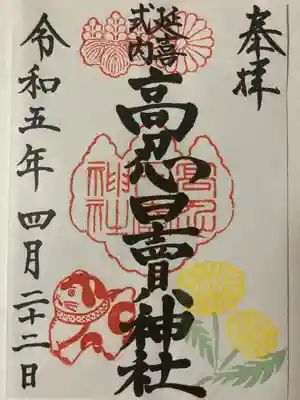 奉拝
延喜
式内
高忍日賣神社
高忍
神社
令和五年 四月二十二日